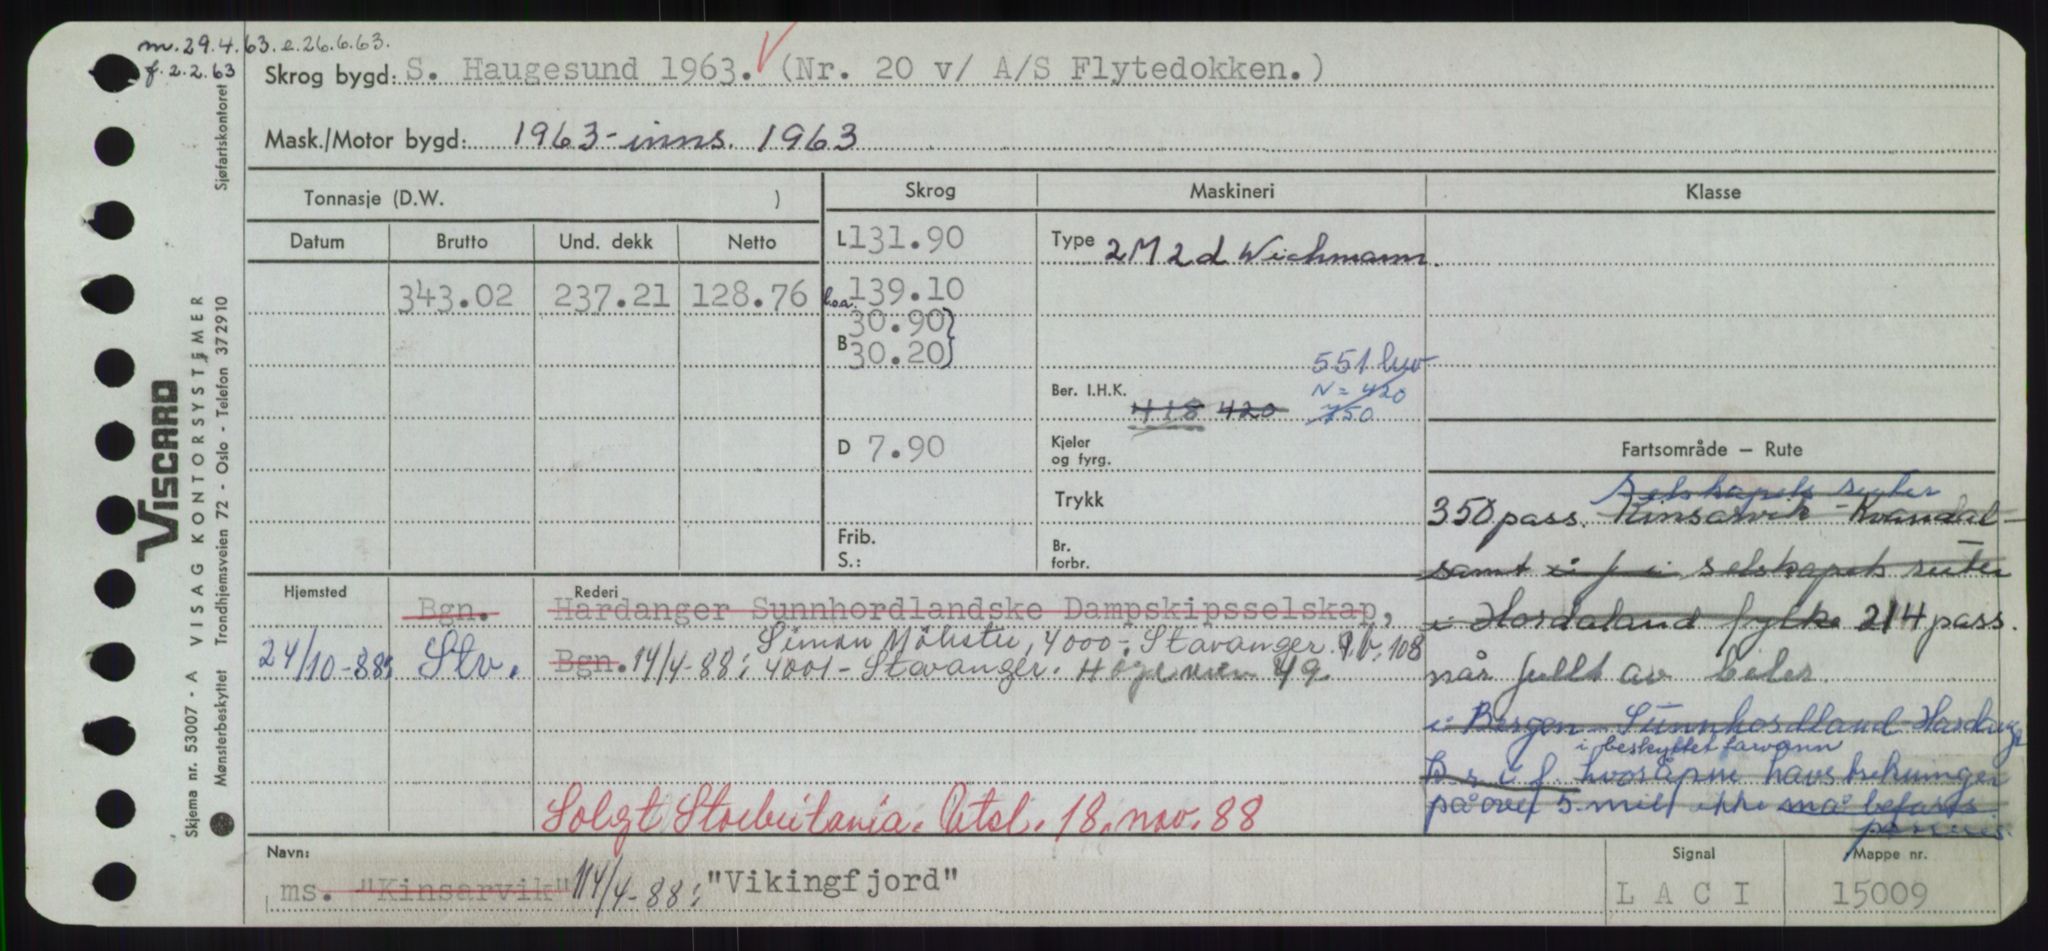 m. 29.4.63. e. 26.6.63.
f. 2.2.63
Skrog bygd: S. Haugesund 1963. V (Nr. 20 v/ A/S Flytedokken.)
Mask./Motor bygd: 1963 - inns. 1963
Tonnasje (D.W. ) Skrog Maskineri Klasse
Datum Brutto Und. dekk Netto L 131.90 Type 2M2d Wichmann.
343.02 237.21 128.76 l.o.a. 139.10
30.90}
B 30.20}
551 
Ber. I.H.K. 418 420 N = 420
750
D 7.90 Kjeler og fyrg. Fartsområde — Rute
Trykk
Frib.
S.:
Br. forbr.
selskapets ruter
350 pass. Kinsarvik - Kvandal -
samt i selskapets ruter
i Hordaland fylke 214 pass.
når fullt av biler.
i Bergen - Sunnhordland - Hardang
i beskyttet farvann
hvor åpne havstrekninger
på over 5 mil ikke må befares
Hjemsted Rederi
Bgn. Hardanger Sunnhordlandske Dampskipsselskap,
Simon Møkster, 4000 - Stavanger. P.b. 108
24/10-88: Stv. Bgn. 14/4-88: 4001 - Stavanger. 49.
Solgt Storbritania. Utsl. 18. nov. 88
Navn: Signal Mappe nr.
ms. "Kinsarvik" 14/4-88: "Vikingfjord" L A C I 15009
Skjema nr. 53007 - A VISAG KONTORSYSTEMER
VISCARD
Mønsterbeskyttet Trondhjemsveien 72 - Oslo - Telefon 372910
Sjøfartskontoret